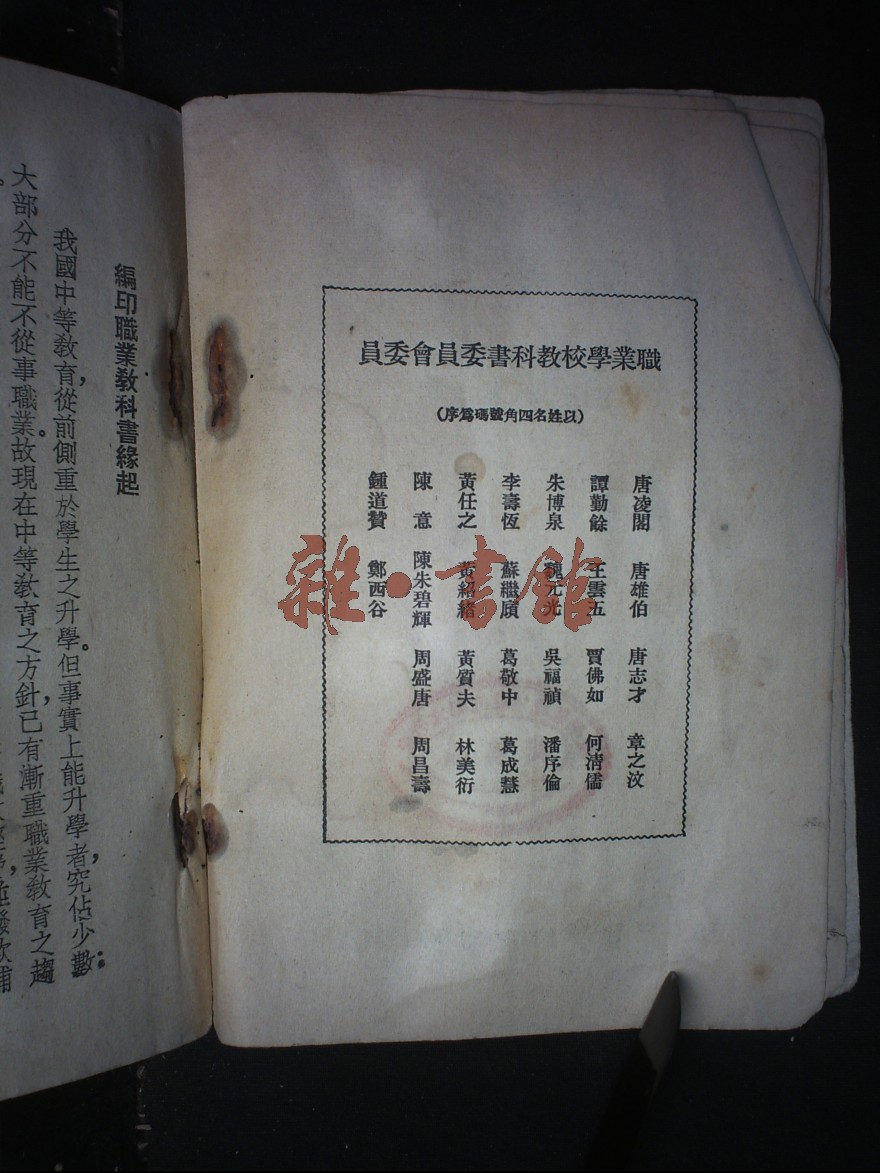 職業學校教科書委員會委員
(以姓名四角號碼爲序)
唐凌閣 唐雄伯 唐志才 章之汶
譚勤餘 王雲五 賈佛如 何清儒
朱博泉 魏元光 吳福禎 潘序倫
李壽恆 蘇繼廎 葛敬中 葛成慧
黃任之 黃紹緒 黃質夫 林美衍
陳意 陳朱碧輝 周盛唐 周昌壽
鍾道贊 鄭西谷
編印職業教科書緣起
我國中等教育,從前側重於學生之升學。但事實上能升學者,究佔少數;
大部分不能不從事職業。故現在中等教育之方針,已有漸重職業教育之趨
雜·書館